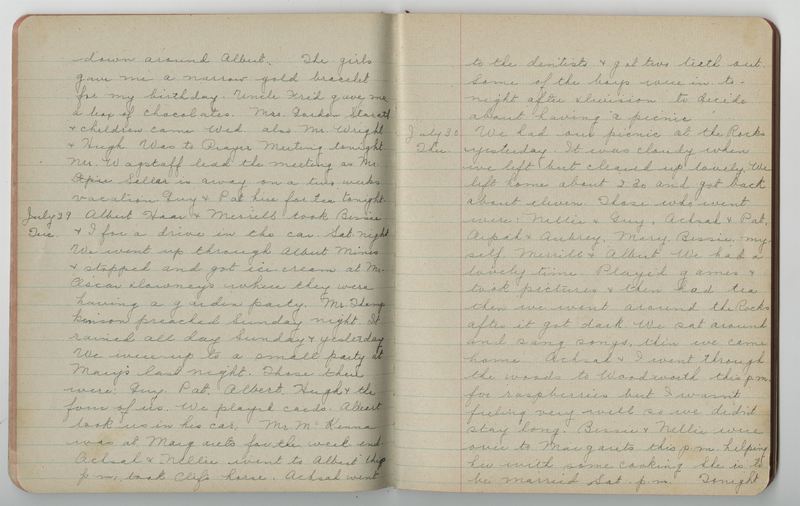 down around Albert. The girls
gave me a narrow gold bracelet
for my birthday. Uncle Fred gave me
a box of chocolates. Mrs. Gordon
& children came Wed. also Mr. Wright
& Hugh. Was to Prayer Meeting tonight
Mr. Wagstaff lead the meeting as Mr.
is away on a two weeks
vacation Guy & Pat here for tea tonight
July 29 Albert Haar & Merrill took Bessie
Tue & I for a drive in the car Sat. night
We went up through Albert Mines
& stopped and got ice cream at Mr.
Oscar Downeys where they were
having a garden party. Mr. Thomp
kinson preached Sunday night. It
rained all day Sunday & yesterday
We were up to a small party at
Mary's last night. Those there
were: Guy, Pat, Albert, Hugh & the
four of us. We played cards. Albert
took us in his car. Mr. McKenna
was at Margarets for the week end
Achsah & Nellie went to Albert this
p.m. took Clif's horse. Achsah went
to the dentists & got two teeth out.
Some of the boys were in to-
night after division to decide
about having a picnic
July 30 We had our picnic at the Rocks
Thu yesterday. It was cloudy when
we left but cleared up lovely. We
left home about 2.30 and got back
about eleven. Those who went
were: Nellie & Guy, Achsah & Pat,
Arpah & Aubrey, Mary, Bessie, my-
self, Merrill & Albert. We had a
lovely time. Played games &
took pictures & then had tea
then we went around the Rocks
after it got dark. We sat around
and sang songs, then we came
home. Achsah & I went through
the woods to Woodworth this p.m.
for raspberries but I wasn't
feeling very well so we didn't
stay long. Bessie & Nellie were
over to Margarets this p.m. helping
her with some cooking She is to
be married Sat. p.m. Tonight